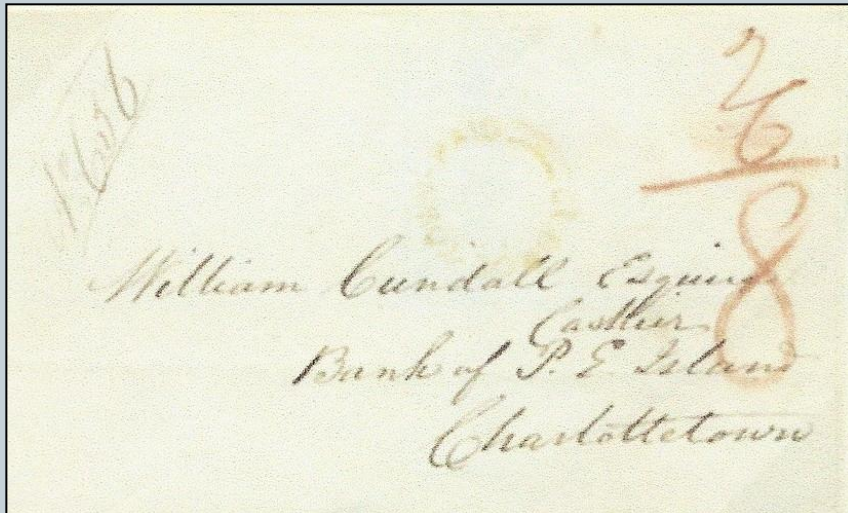 2/6
8
William Cundall Esquire
Cashier
Bank of P. E. Island
Charlottetown